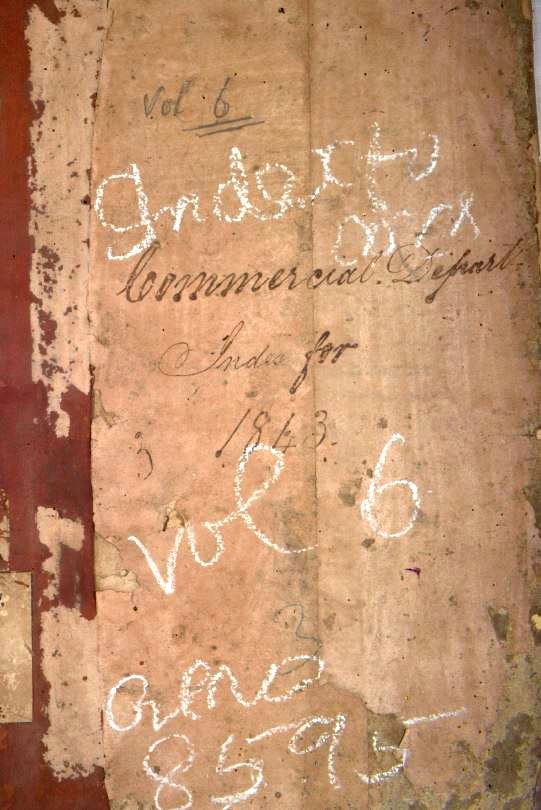 Vol 6
Index to
Commercial. Depart.
Index for
1843.
Vol 6
8595